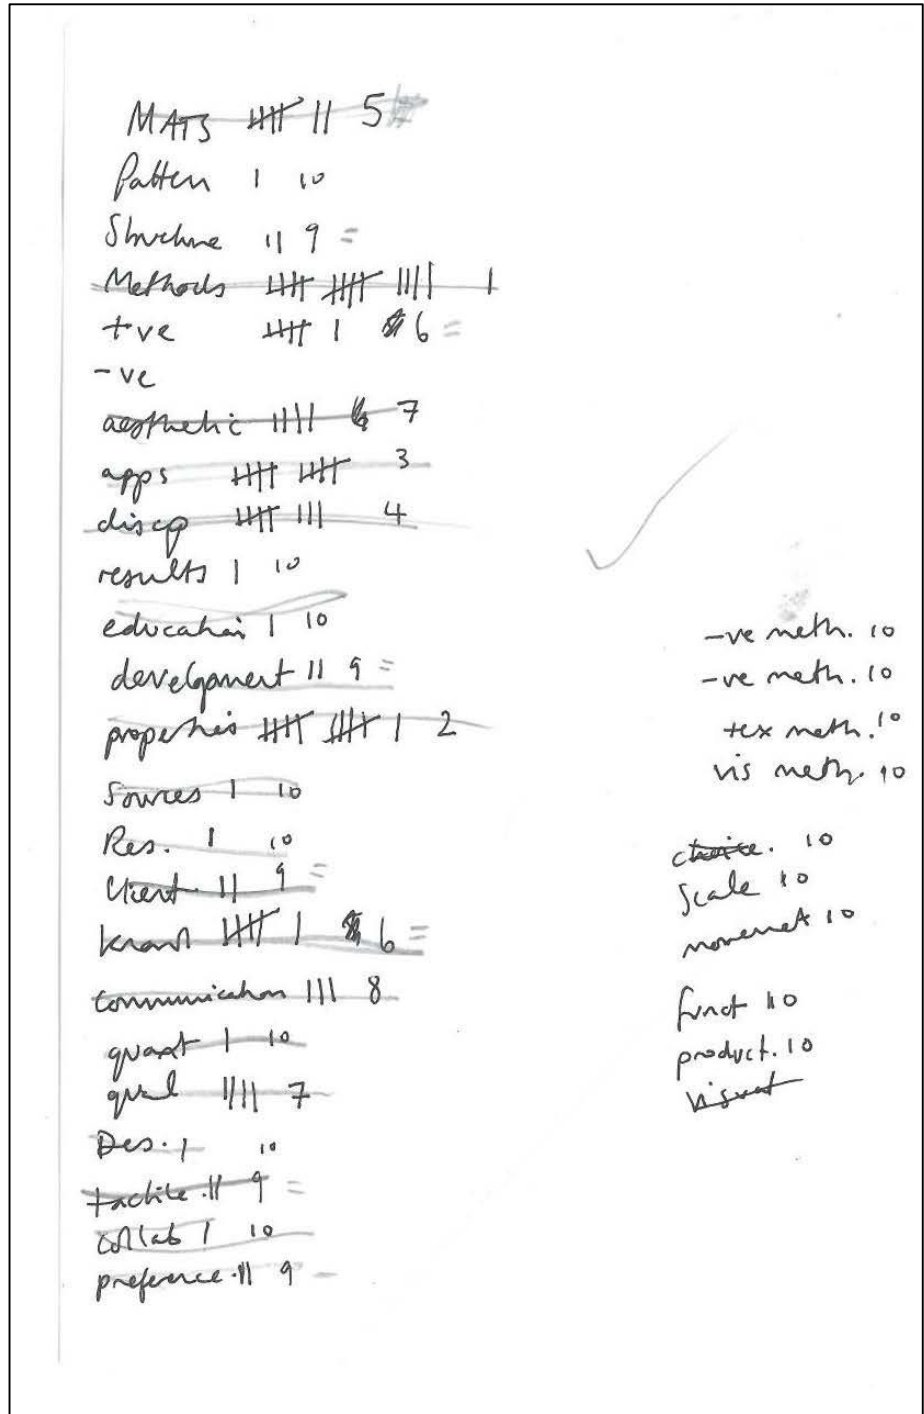 MATS 𝍸 || 5
Patten | 10
Structure || 9 =
Methods 𝍸 𝍸 |||| 1
+ve 𝍸 | 6 =
-ve
aesthetic |||| 7
apps 𝍸 𝍸 3
discip 𝍸 ||| 4
results | 10
education | 10
development || 9 =
properties 𝍸 𝍸 | 2
Sources | 10
Res. | 10
Client || 9 =
known 𝍸 | 6 =
communication ||| 8
quant | 10
qual |||| 7
Des. | 10
tactile. || 9 =
collab | 10
preference. || 9 =
-ve meth. 10
-ve meth. 10
tex meth. 10
vis meth. 10
choice. 10
Scale 10
movemet 10
funct 10
product. 10
visual